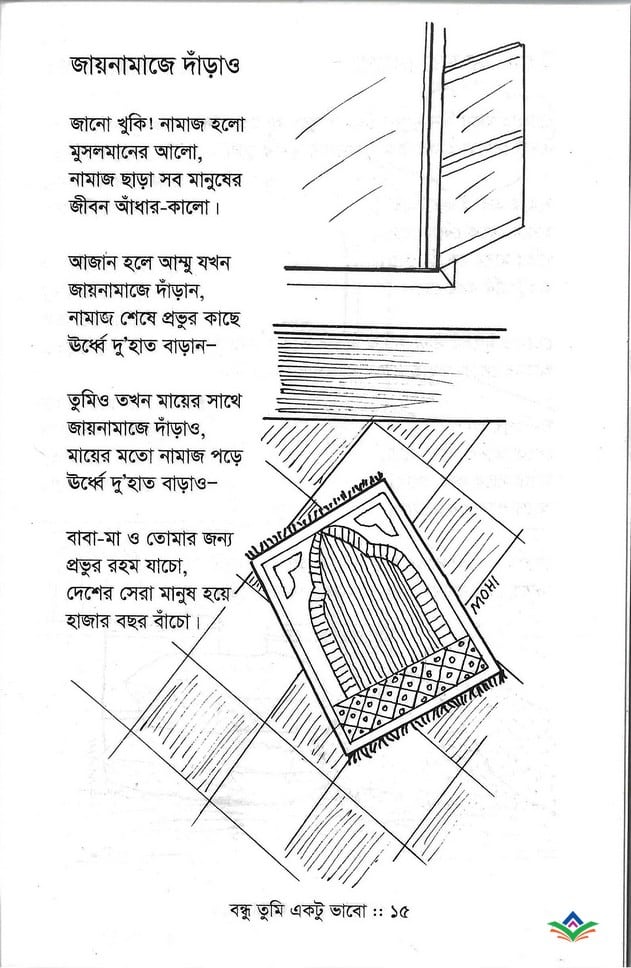 জায়নামাজে দাঁড়াও
জানো খুকি! নামাজ হলো
মুসলমানের আলো,
নামাজ ছাড়া সব মানুষের
জীবন আঁধার-কালো।
আজান হলে আম্মু যখন
জায়নামাজে দাঁড়ান,
নামাজ শেষে প্রভুর কাছে
ঊর্ধ্বে দু'হাত বাড়ান–
তুমিও তখন মায়ের সাথে
জায়নামাজে দাঁড়াও,
মায়ের মতো নামাজ পড়ে
ঊর্ধ্বে দু'হাত বাড়াও–
বাবা-মা ও তোমার জন্য
প্রভুর রহম যাচো,
দেশের সেরা মানুষ হয়ে
হাজার বছর বাঁচো।
MOHI
বন্ধু তুমি একটু ভাবো :: ১৫